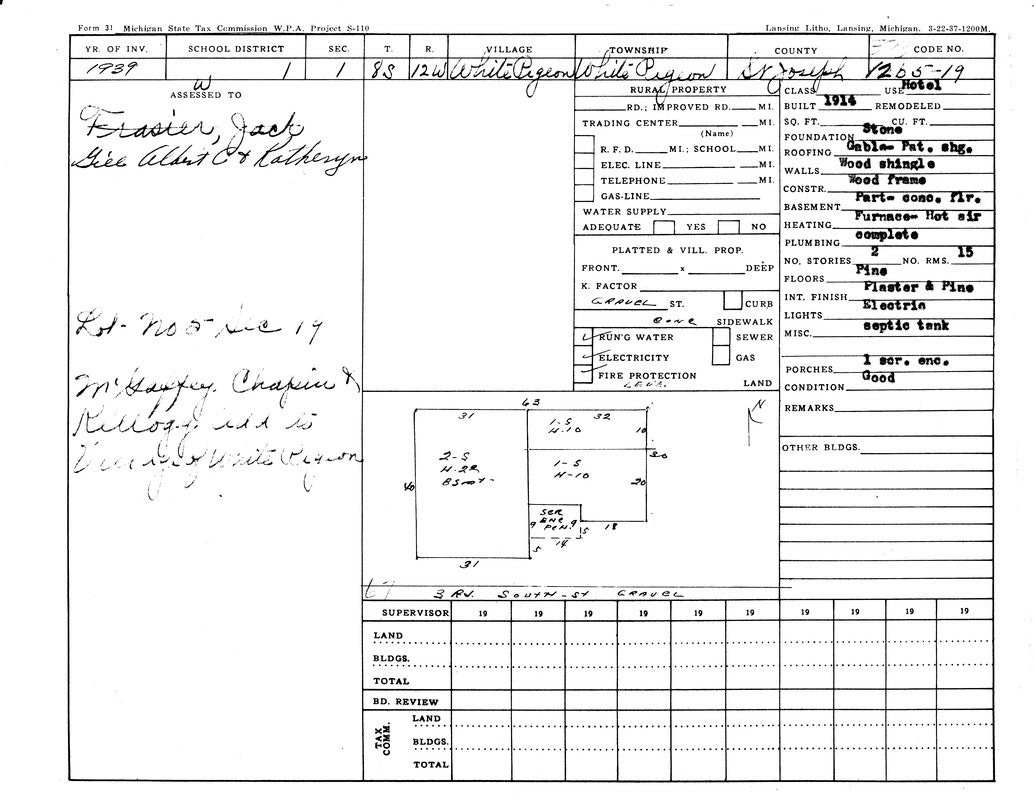 Form 31 Michigan State Tax Commission W.P.A. Project S-110
Lansing Litho, Lansing, Michigan. 3-22-37-1200M.
YR. OF INV. SCHOOL DISTRICT SEC. T. R. VILLAGE TOWNSHIP COUNTY CODE NO.
1939 W 1 1 8S 12W White Pigeon White Pigeon St Joseph 1265-19
ASSESSED TO
Frasier, Jack
Gill Albert C & Katheryn
Lot- No 5 Sec 19
McGaffey, Chapin &
Kellogg add to
Village of White Pigeon
RURAL PROPERTY
RD.; IMPROVED RD. MI.
TRADING CENTER MI.
(Name)
R. F. D. MI.; SCHOOL MI.
ELEC. LINE MI.
TELEPHONE MI.
GAS-LINE
WATER SUPPLY
ADEQUATE YES NO
PLATTED & VILL. PROP.
FRONT. x DEEP
K. FACTOR
GRAVEL ST. CURB
CONC SIDEWALK
RUN'G WATER SEWER
ELECTRICITY GAS
FIRE PROTECTION
LEVEL LAND
CLASS USE Hotel
BUILT 1914 REMODELED
SQ. FT. CU. FT.
FOUNDATION Stone
ROOFING Gable- Pat. shg.
WALLS Wood shingle
CONSTR. Wood frame
BASEMENT Part- conc. flr.
HEATING Furnace- Hot air
PLUMBING complete
NO. STORIES 2 NO. RMS. 15
FLOORS Pine
INT. FINISH Plaster & Pine
LIGHTS Electric
MISC. septic tank
PORCHES 1 scr. enc.
CONDITION Good
REMARKS
OTHER BLDGS.
63
31 32 N
1-S
H-10 10
30
2-S
H-22
BSmt-
1-S
H-10
40 20
SCR
ENC
PCH.
9 9
5 18
14
5
31
67 3 RD. SOUTH-ST GRAVEL
SUPERVISOR 19 19 19 19 19 19 19 19 19 19
LAND
BLDGS.
TOTAL
BD. REVIEW
TAX COMM.
LAND
BLDGS.
TOTAL